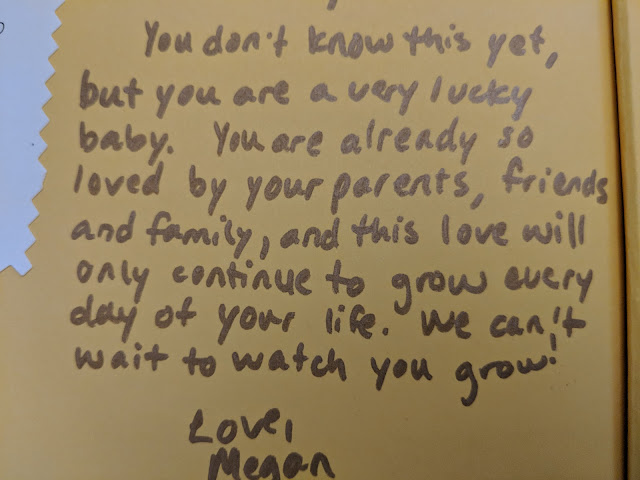 You don't know this yet,
but you are a very lucky
baby. You are already so
loved by your parents, friends
and family, and this love will
only continue to grow every
day of your life. We can't
wait to watch you grow!
Love,
Megan